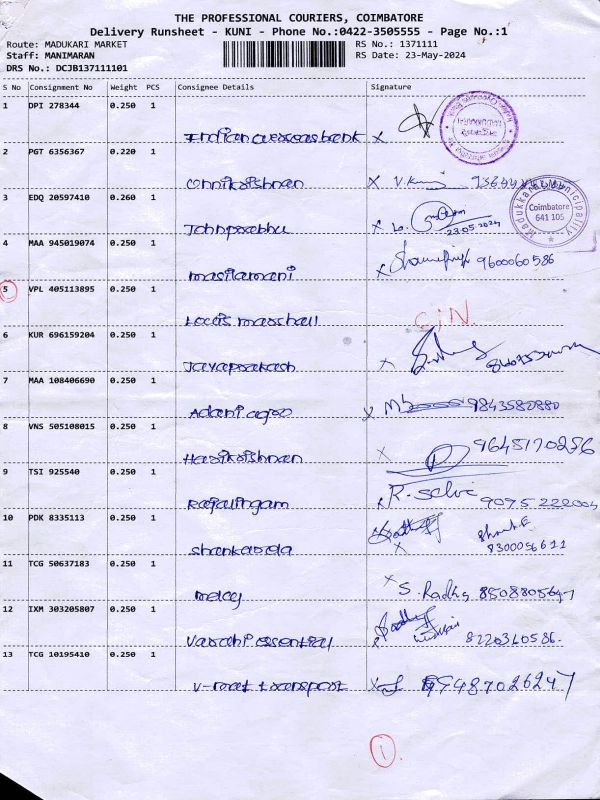 THE PROFESSIONAL COURIERS, COIMBATORE
Delivery Runsheet - KUNI - Phone No.:0422-3505555 - Page No.:1
Route: MADUKARI MARKET
RS No.: 1371111
Staff: MANIMARAN
RS Date: 23-May-2024
DRS No.: DCJB137111101
S No Consignment No Weight PCS Consignee Details Signature
1 DPI 278344 0.250 1
Indian overseas bank X
2 PGT 6356367 0.220 1
Onnikrishnan X V.Kumi
3 EDQ 20597410 0.260 1
Johnprabhu X
23.05.2024
Madukkarai Municipality
Coimbatore
641 105
4 MAA 945019074 0.250 1
masilamani X 9600060586
5 VPL 405113895 0.250 1
Louis marshall
6 KUR 696159204 0.250 1
Jayaprakash X
7 MAA 108406690 0.250 1
Adani agro X 9843580880
8 VNS 505108015 0.250 1
Harikrishnan X 9645170256
9 TSI 925540 0.250 1
Rajalingam X R. selvi 9095222004
10 PDK 8335113 0.250 1
shankarda X 8300056611
11 TCG 50637183 0.250 1
mercy X S. Radha
12 IXM 303205807 0.250 1
Varahi essential X 8220360586.
13 TCG 10195410 0.250 1
V-mat transport X 99487026247
1